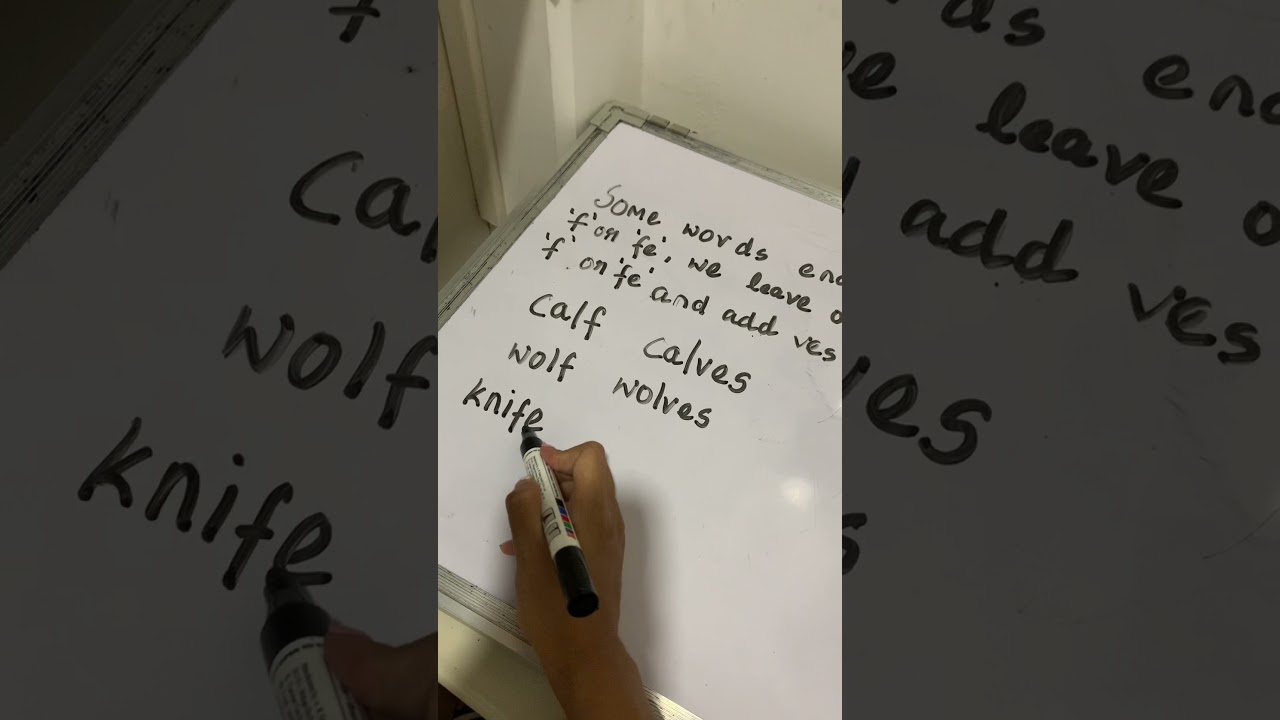 Some words end
'f' or 'fe', we leave o
'f' or 'fe' and add ves
calf calves
wolf wolves
knife